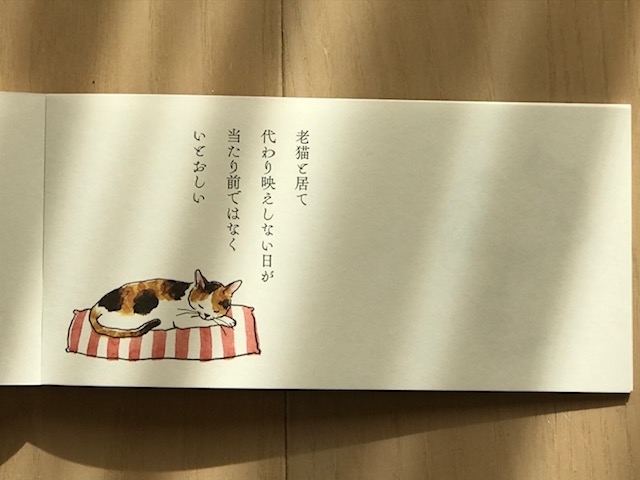 老猫と居て
代わり映えしない日が
当たり前ではなく
いとおしい